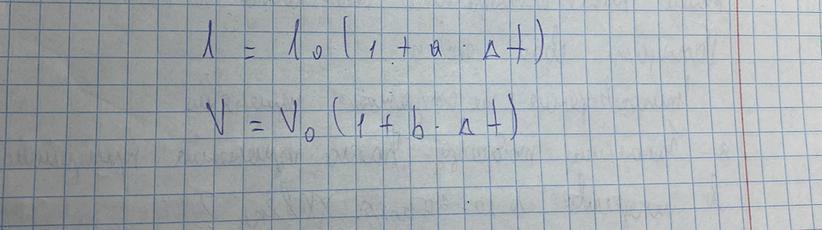 l = l₀ (1 + a · Δt)
V = V₀ (1 + b · Δt)